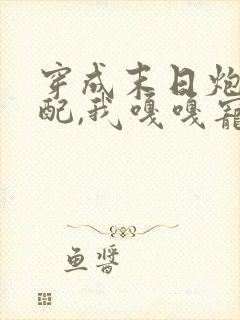 穿成末日炮
配,我嘎嘎寵
鱼醬